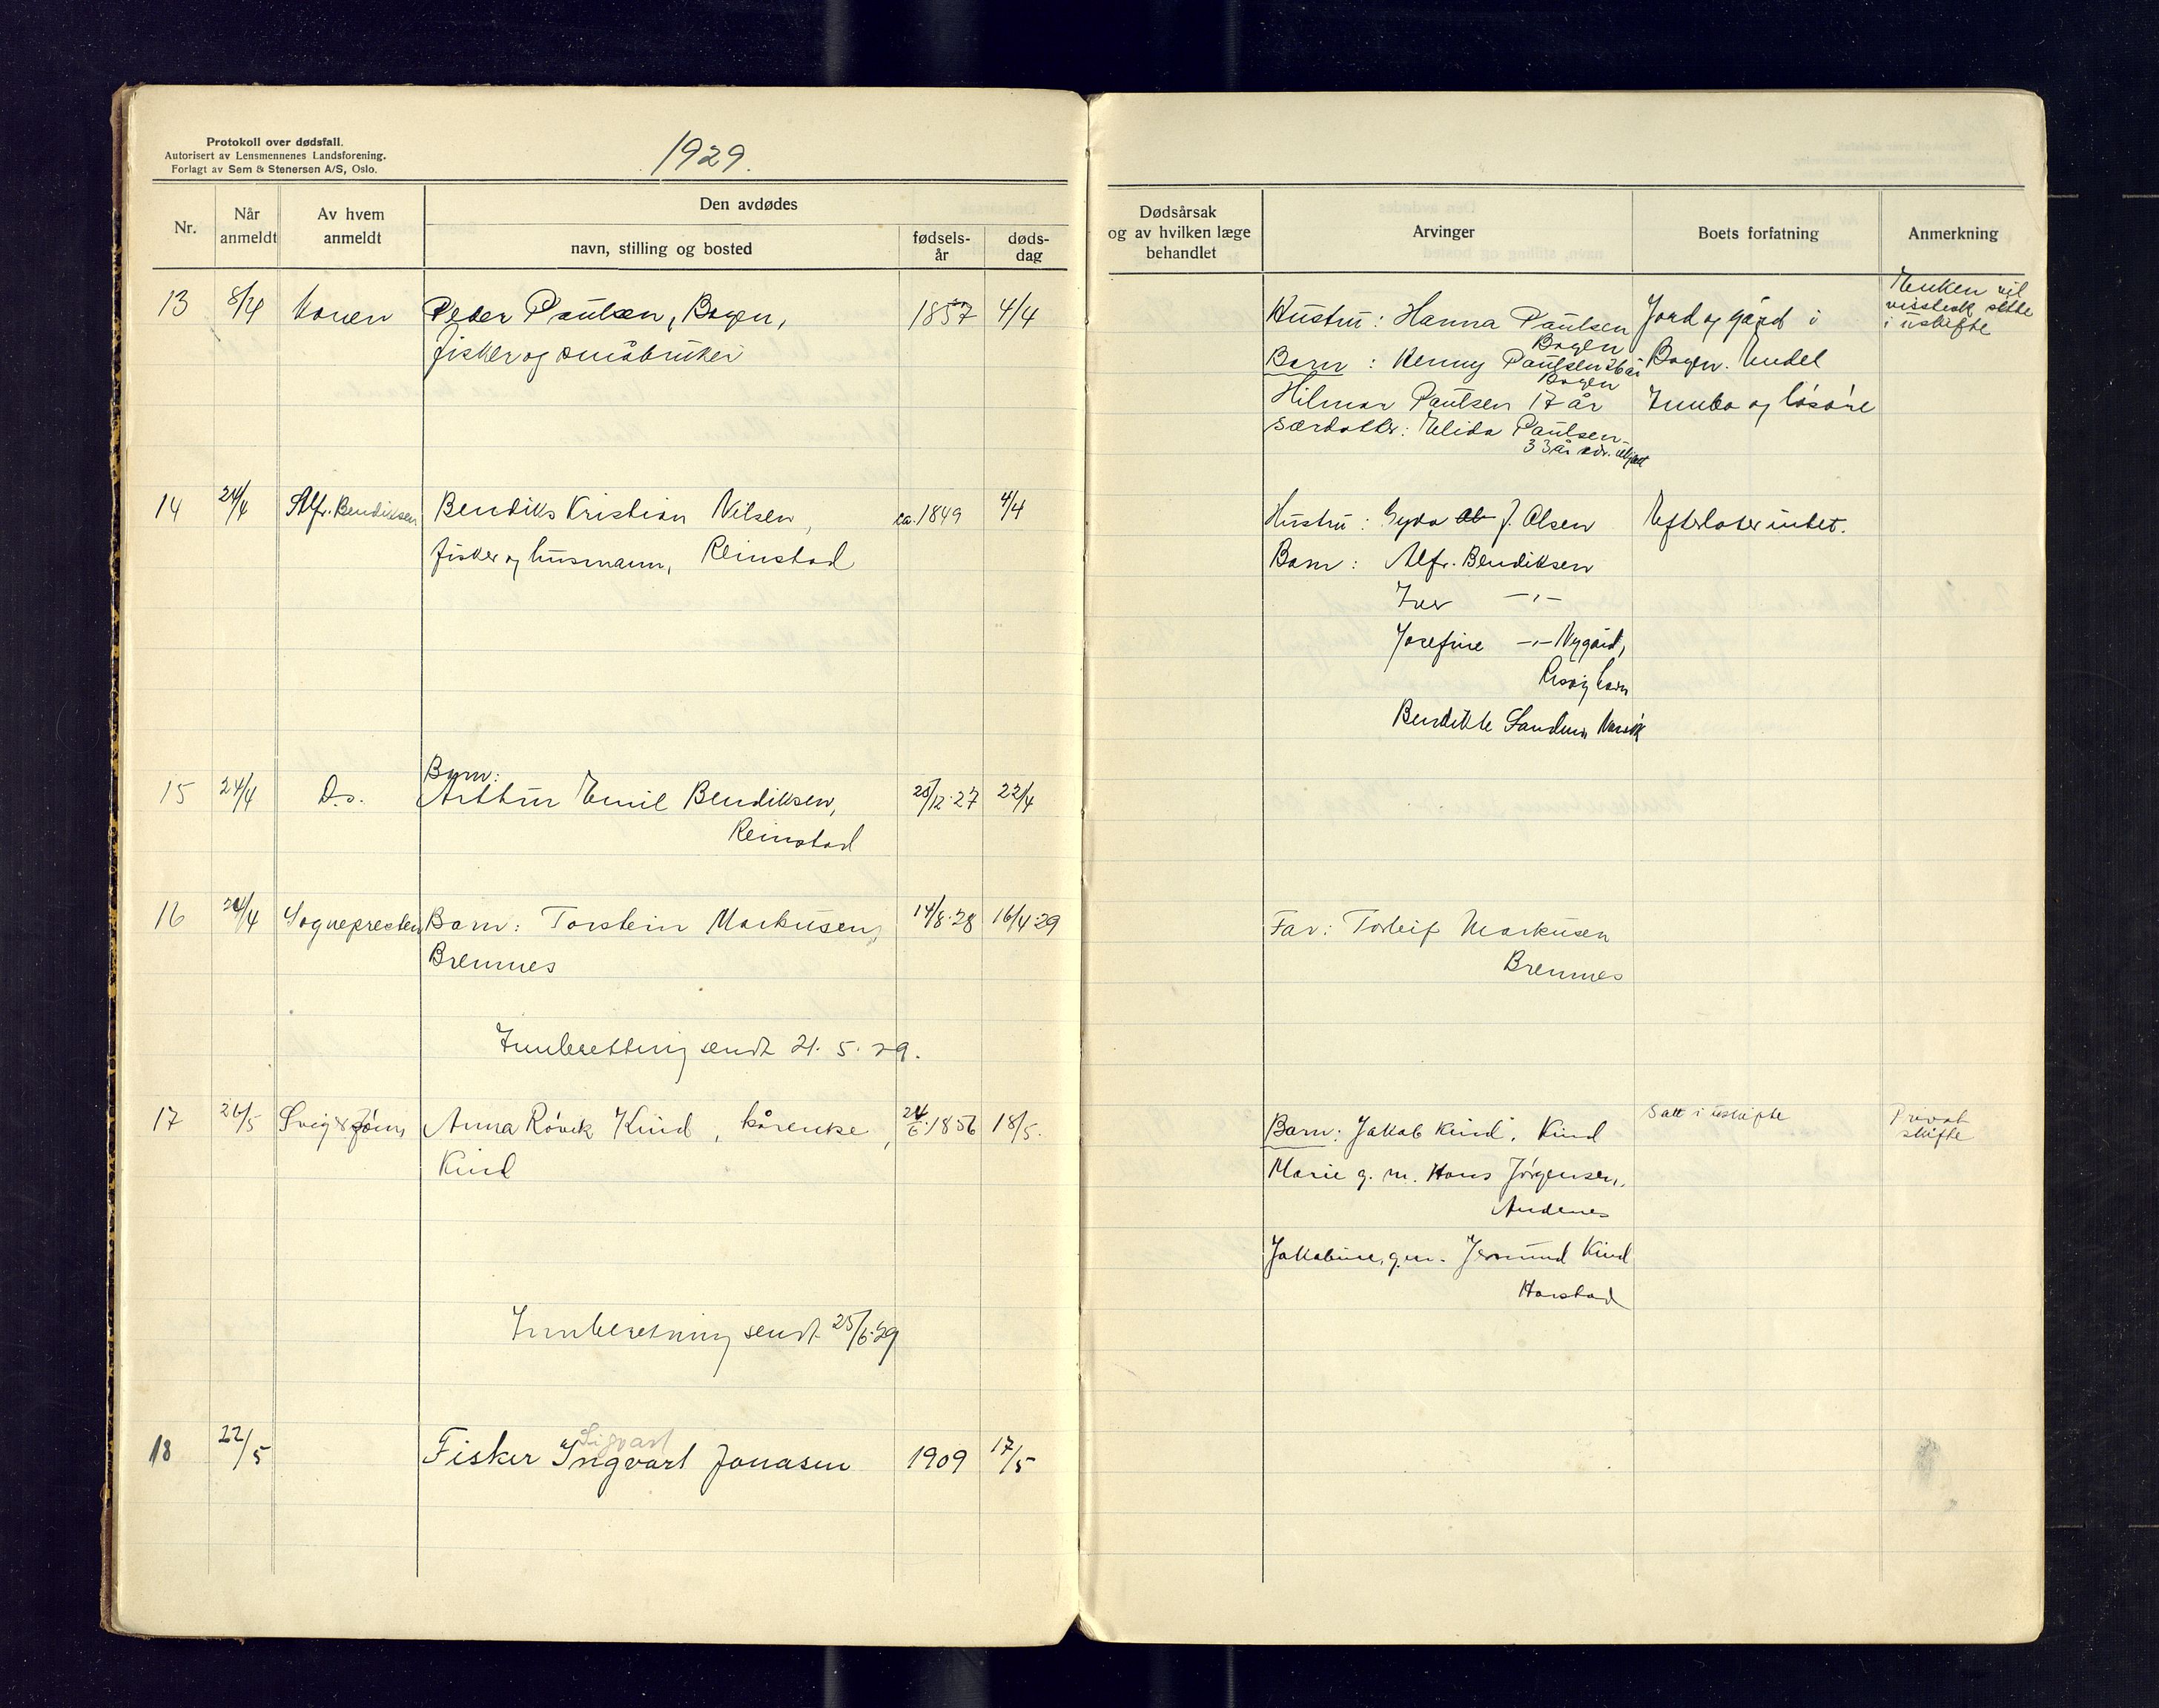 Protokoll over dødsfall.
Autorisert av Lensmennenes Landsforening.
Forlagt av Sem & Stenersen A/S, Oslo.
1929.
Nr.
Når anmeldt
Av hvem anmeldt
Den avdødes
navn, stilling og bosted
fødsels-år
døds-dag
Dødsårsak og av hvilken læge behandlet
Arvinger
Boets forfatning
Anmerkning
13 8/4 Konen Peder Paulsen, Bogen, 1857 4/4
fisker og småbruker
Hustru: Hanna Paulsen
Bogen
Barn: Henny Paulsen 26 år
Bogen
Hilmar Paulsen 17 år
Særdatter: Elida Paulsen
33 år
Jord og gård i
Bogen. Endel
Innbo og løsøre
Enken vil
visstnok sitte
i uskifte
14 24/4 Alfr. Bendiksen Bendiks Kristian Nilsen, ca. 1849 4/4
fisker og husmann, Reinstad
Hustru: Gyda J. Olsen Efterlater intet.
Barn: Alfr. Bendiksen
Iver -"-
Josefine -"- Nygård,
Risøyhavn
Bendikte Sandnes Narvik
Barn:
15 24/4 D.s. Arthur Emil Bendiksen, 25/12-27 22/4
Reinstad
16 24/4 Sognepresten Barn: Torstein Markusen, 14/8-28 16/4-29
Bremnes
Far: Torleif Markusen
Bremnes
Innberetning sendt 21.5.29.
17 26/5 Svigersønn Anna Røvik Kind, kårenke, 24/6-1856 18/5.
Kind
Barn: Jakob Kind, Kind
Marie g. m. Hans Jørgensen,
Andenes
Jakobine, g.m. Jermund Kind
Harstad
Satt i uskifte
Privat
skifte
Innberetning sendt 25/6-29
Sigvart
18 22/5 Fisker Ingvart Jonasen 1909 17/5